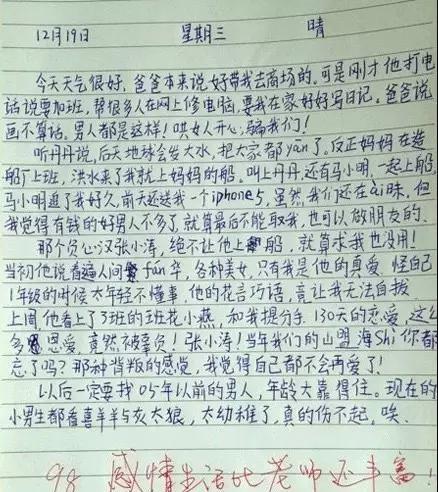 12月19日 星期三 晴
今天天气很好,爸爸本来说好带我去商场的。可是刚才他打电
话说要加班,帮很多人在网上修电脑,要我在家好好写日记。爸爸说
画不算话。男人都是这样!哄女人开心,骗我们!
听丹丹说,后天地球会发大水,把大家都yān了。反正妈妈在造
船厂上班,洪水来了我就上妈妈的船,叫上丹丹,还有马小明,一起上船。
马小明追了我好久,前天还送我一个iphone5,虽然我们还在ài昧,但
我觉得有钱的好男人不多了,就算最后不能取我,也可以做朋友的。
那个负心汉张小涛,绝不让他上船,就算求我也没用!
当初他说看遍人间fán华,各种美女,只有我是他的真爱。怪自己
1年级的时候太年轻不懂事,他的花言巧语,竟让我无法自拔。
上周,他看上了3班的班花小燕,和我提分手。130天的恋爱,这么
多恩爱,竟然被辜负!张小涛!当年我们的山盟海Shì你都
忘了吗?那种背叛的感觉,我觉得自己都不会再爱了!
以后一定要找05年以前的男人,年龄大靠得住。现在的
小男生都看喜羊羊与灰太狼,太幼稚了,真的伤不起,唉。
98 感情生活比老师还丰富!